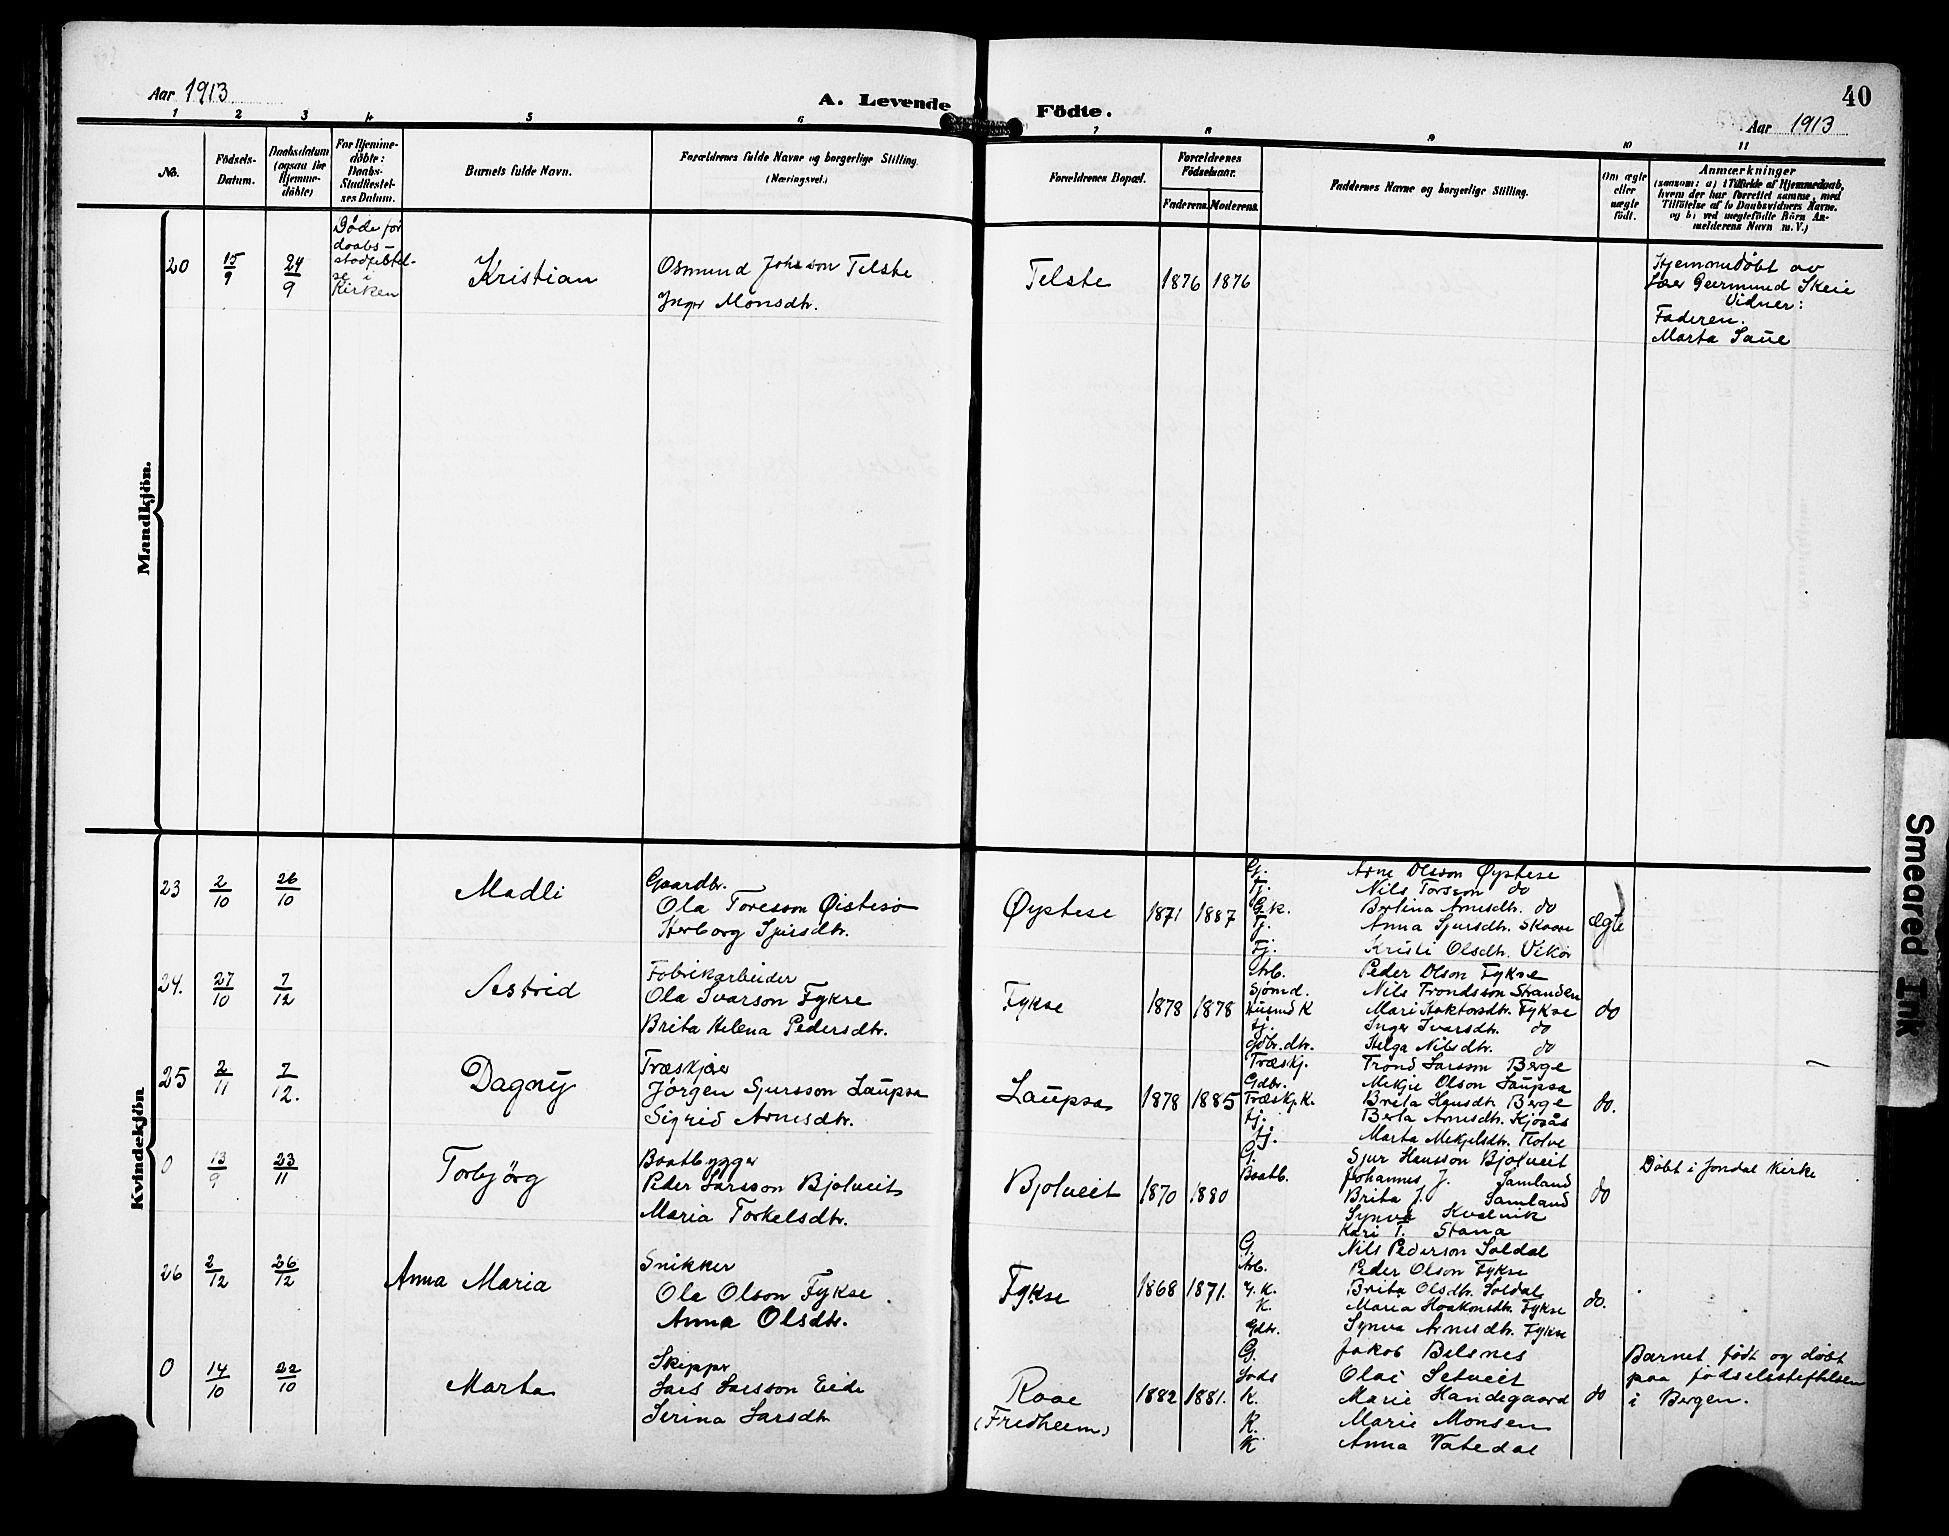 Aar 1913
A. Levende Födte.
40
Aar 1913
1 2 3 4 5 6 7 8 9 10 11
No.
Födsels-Datum.
Daabsdatum (ogsaa for Hjemme-döbte)
For Hjemme-döbte: Daabs-Stadfestel-ses Datum.
Barnets fulde Navn.
Forældrenes fulde Navne og borgerlige Stilling.
(Næringsvei.)
Forældrenes Bopæl.
Forældrenes Födselsaar.
Faderens. Moderens.
Faddernes Navne og borgerlige Stilling.
Om ægte eller uægte födt.
Anmærkninger
(saasom: a) i Tilfælde af Hjemmedaab,
hvem der har forrettet samme, med
Tilföielse af to Daabsvidners Navne,
og b) ved uægtefödte Börn An-
melderens Navn m. V.)
Mandkjön.
20 15/9 24/9
Døde før
daabs-
stadfestel-
se i
Kirken
Kristian
Osmund Johsson Telste
Inger Monsdtr.
Telste 1876 1876
Hjemmedøbt av
Lær Geermund Skeie
Vidner:
Faderen.
Marta Saue
Kvindekjön
23 2/10 26/10 Madli
Gaardbr.
Ola Toresson Øistesø
Herborg Sjursdtr.
Øystese 1871 1887
Gj. Arne Olsson Øystese
Tj. Nils Torsson do
G.k. Bertina Arnesdtr. do
Tj. Anna Sjursdtr. Skaare
Tj. Kristi Olsdtr. Vikør
ægte
24. 27/10 7/12 Astrid
Fabrikarbeider
Ola Ivarson Fykse
Brita Helena Pedersdtr.
Fykse 1878 1878
Arb. Peder Olson Fykse
Sjømd. Nils Trondsson Stranden
Husmd K Mari Haktorsdtr. Fykse
tj. Inger Ivarsdtr. do
gdbr. dtr. Helga Nilsdtr. do
do
25 2/11 7/12. Dagny
Træskjær
Jørgen Sjursson Laupsa
Sigrid Arnesdtr.
Laupsa 1878 1885
Træskj. Trond Larsson Berge
Gdbr. Mekjel Olson Laupsa
Træskj. K. Brita Hansdtr. Berge
tj. Berta Arnesdtr. Kjosås
tj. Marta Mekjelsdtr. Flotve
do.
0 13/9 23/11 Torbjörg
Baatbygger
Peder Larsson Bjolveit
Maria Torkelsdtr.
Bjolveit 1870 1880
G. Sjur Hansson Bjolveit
Baatb. Johannes J. Samland
Brita J. Samland
Synva Kvalvik
Kari T. Stana
do
Døbt i Jondal Kirke
26 2/12 26/12 Anna Maria
Snikker
Ola Olson Fykse
Anna Olsdtr.
Fykse 1868 1871.
G. Nils Pederson Soldal
Arb. Peder Olson Fykse
G. K. Brita Olsdtr. Soldal
K. Maria Haakonsdtr. Fykse
Gdtr. Synva Arnesdtr. Fykse
do.
0 14/10 22/10 Marta
Skipper
Lars Larsson Eide
Serina Larsdtr
Roae
(Fredheim) 1882 1881.
G. Jakob Belsnes
Lods Olai Setveit
K. Marie Handegaard
K. Marie Monsen
K Anna Vatedal
do
Barnet født og døbt
paa fødselsstiftelsen
i Bergen.
Smeared Ink